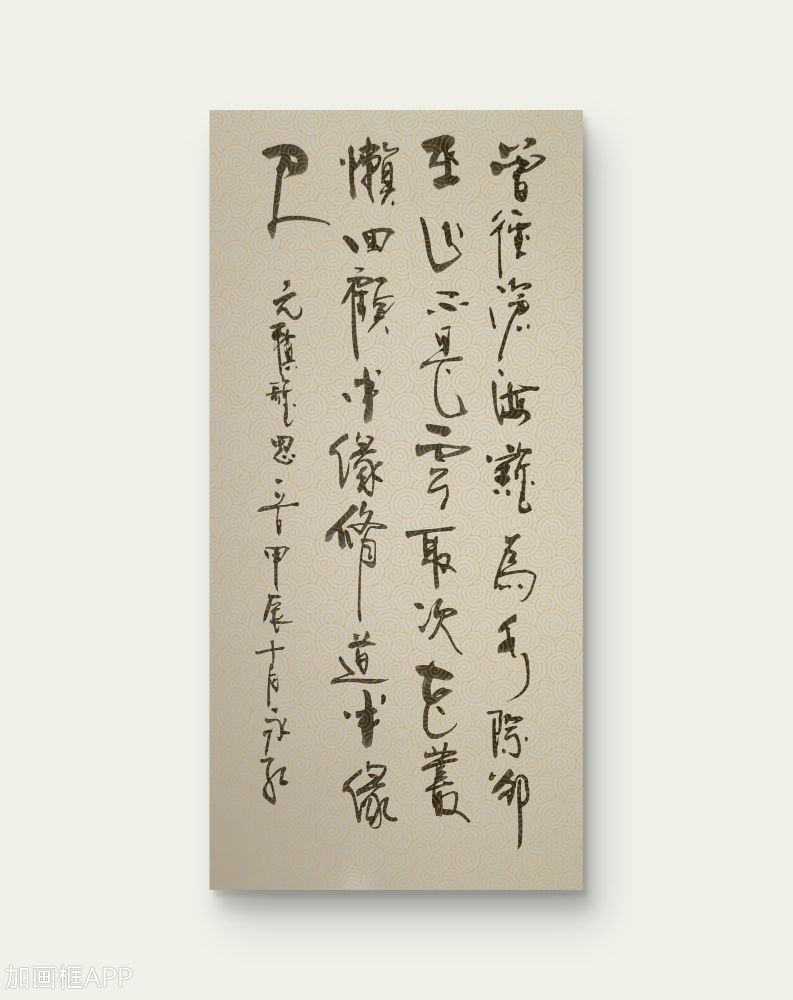 曾經滄海難為水除卻
巫山不是雲取次花叢
懶回顧半緣脩道半緣
君
元稹離思一首甲辰十月永紅
加画框APP